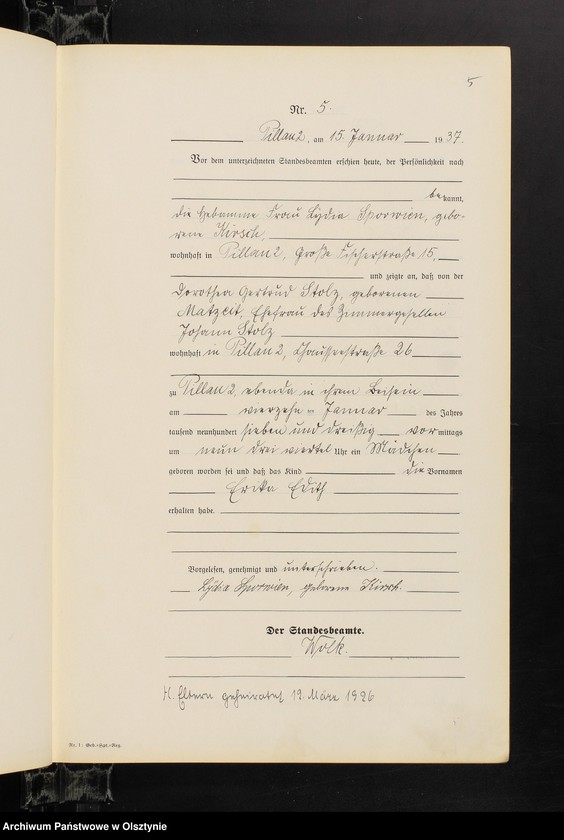 5
Nr. 5.
Pillau 2, am 15. Januar 1937.
Vor dem unterzeichneten Standesbeamten erschien heute, der Persönlichkeit nach
bekannt,
die Hebamme Frau Lydia Sporwien, gebo-
rene Kirsch,
wohnhaft in Pillau 2, Große Fischerstraße 15,
und zeigte an, daß von der
Dorothea Gertrud Stolz, geborenen
Matzeit, Ehefrau des Zimmergesellen
Johann Stolz
wohnhaft in Pillau 2, Chausseestraße 26
zu Pillau 2, ebenda in ihrem Beisein
am vierzehn ten Januar des Jahres
tausend neunhundert sieben und dreißig vormittags
um neun drei viertel Uhr ein Mädchen
geboren worden sei und daß das Kind die Vornamen
Erika Edith
erhalten habe.
Vorgelesen, genehmigt und unterschrieben.
Lydia Sporwien, geborene Kirsch.
Der Standesbeamte.
Wolk.
Eltern geheiratet 19. März 1926
Archiwum Państwowe w Olsztynie